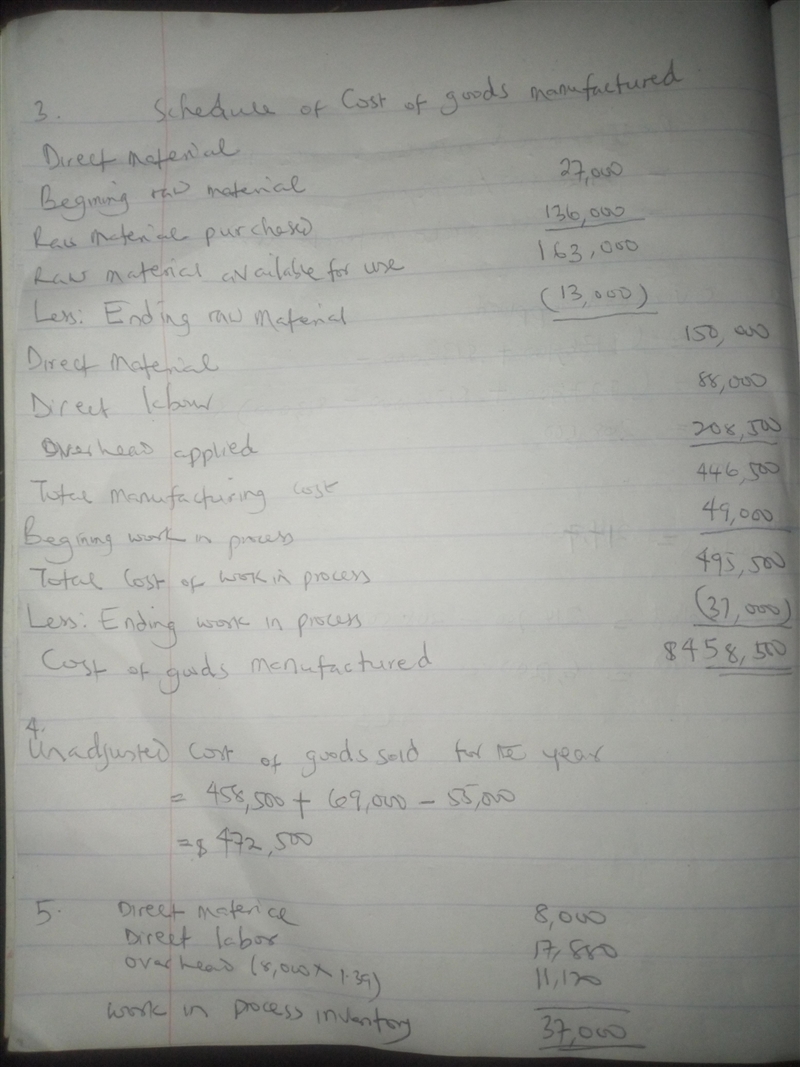 3. Schedule of Cost of goods manufactured
Direct material
Begining raw material 27,000
Raw material purchased 136,000
Raw material available for use 163,000
Less: Ending raw material (13,000)
Direct material 150,000
Direct labour 88,000
Overhead applied 208,500
Total manufacturing cost 446,500
Begining work in process 49,000
Total cost of work in process 495,500
Less: Ending work in process (37,000)
Cost of goods manufactured $458,500
4.
Unadjusted cost of goods sold for the year
= 458,500 + 69,000 - 55,000
= $ 472,500
5. Direct material 8,000
Direct labor 17,880
Overhead (8,000 x 1.39) 11,120
Work in process inventory 37,000